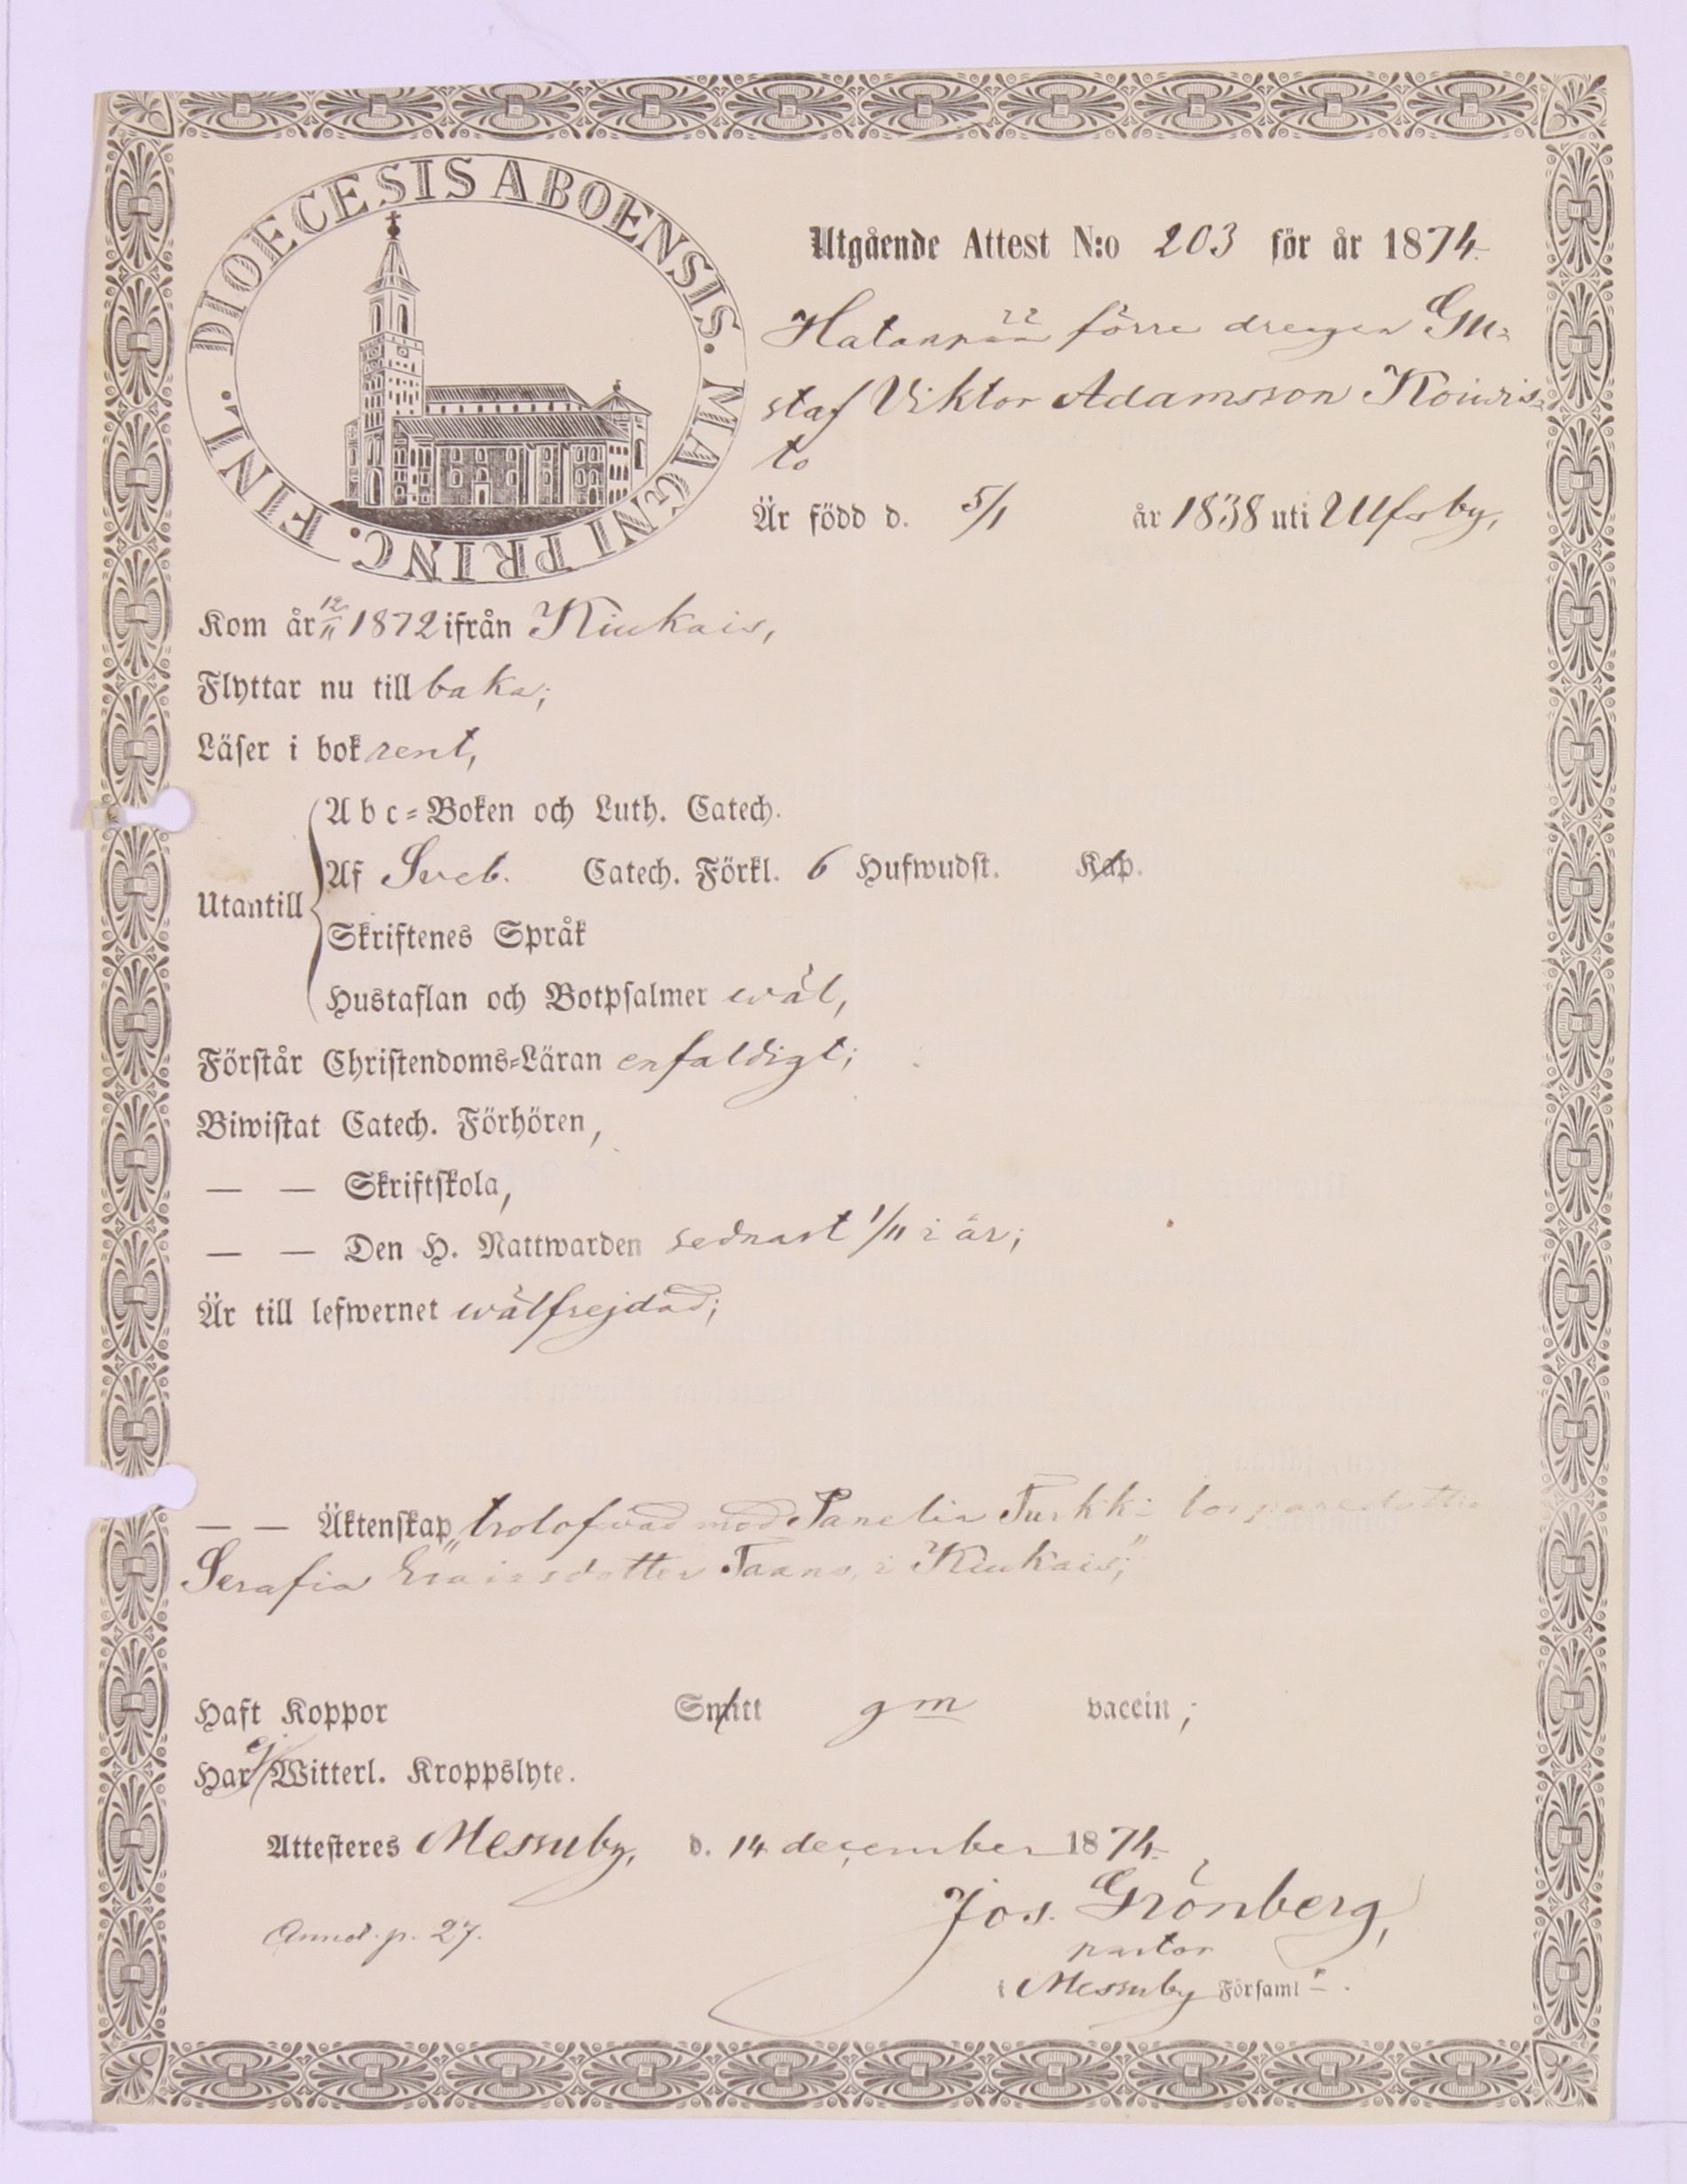 DIOECESIS ABOENSIS. MAGNI PRINC. FINL.
Utgående Attest N:o 203 för år 1874.
Hatanpää förre drengen Gu-
staf Viktor Adamsson Koivis-
to
Är född d. 5/1 år 1838 uti Ulfsby,
Kom år 12/11 1872 ifrån Kiukais,
Flyttar nu till baka;
Läser i bok rent,
Utantill
Abc=Boken och Luth. Catech.
Af Sveb. Catech. Förkl. 6 Hufwudst. Kap.
Skriftenes Språk
Hustaflan och Botpsalmer wäl,
Förstår Christendoms=Läran enfaldigt;
Biwistat Catech. Förhören,
— — Skriftskola,
— — Den H. Nattwarden sednast 1/11 i år;
Är till lefwernet wälfrejdad;
— — Äktenskap, "trolofwad med Panelia Turkki torparedotter
Serafia i Kiukais;"
Haft Koppor Smitt gm vaccin;
Har ej Witterl. Kroppslyte.
Attesteres Messuby, d. 14 december 1874.
Jos. Grönberg,
Annot. p. 27.
pastor
i Messuby Församl.